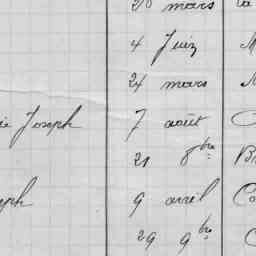 20 mars la
4 Juin M
24 mars
Joseph 7 août
21 8bre B
9 avril Co
29 9bre